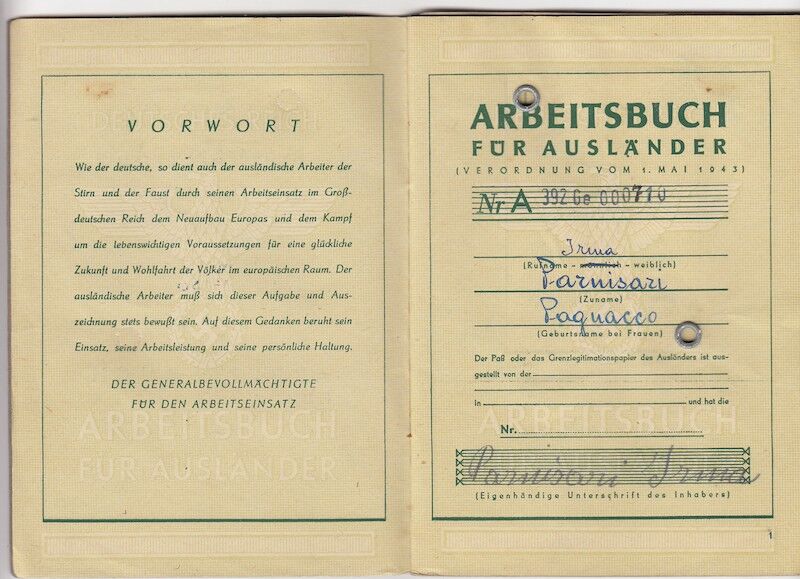 VORWORT
Wie der deutsche, so dient auch der ausländische Arbeiter der
Stirn und der Faust durch seinen Arbeitseinsatz im Groß-
deutschen Reich dem Neuaufbau Europas und dem Kampf
um die lebenswichtigen Voraussetzungen für eine glückliche
Zukunft und Wohlfahrt der Völker im europäischen Raum. Der
ausländische Arbeiter muß sich dieser Aufgabe und Aus-
zeichnung stets bewußt sein. Auf diesem Gedanken beruht sein
Einsatz, seine Arbeitsleistung und seine persönliche Haltung.
DER GENERALBEVOLLMÄCHTIGTE
FÜR DEN ARBEITSEINSATZ
ARBEITSBUCH
FÜR AUSLÄNDER
ARBEITSBUCH
FÜR AUSLÄNDER
(VERORDNUNG VOM 1. MAI 1943)
Nr A 392 Ge 000710
Irma
(Rufname - männlich - weiblich)
Parnisari
(Zuname)
Pagnacco
(Geburtsname bei Frauen)
Der Paß oder das Grenzlegitimationspapier des Ausländers ist aus-
gestellt von der
In und hat die
Nr.
ARBEITSBUCH
Parnisari Irma
(Eigenhändige Unterschrift des Inhabers)
1